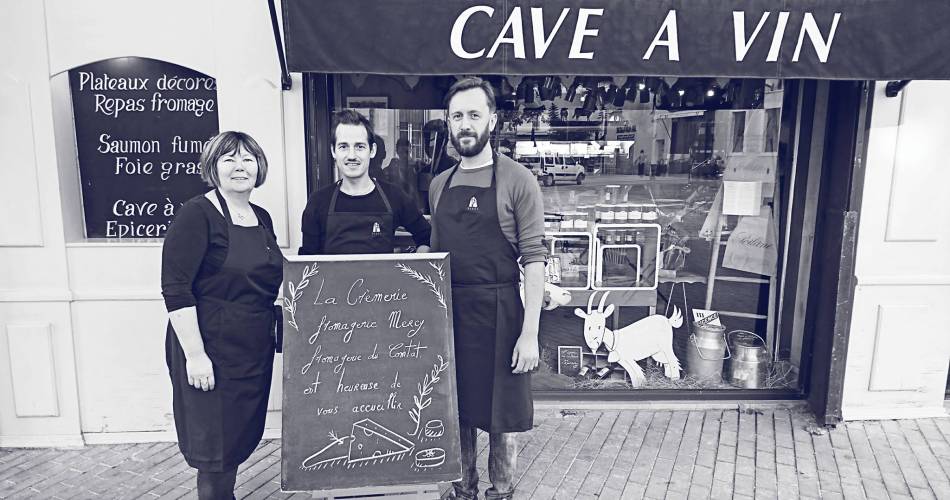 CAVE A VIN
Plateaux décorés
Repas fromage
Saumon fumé
Foie gras
Cave à
Epiceri
La Crèmerie
fromagerie Mercy
fromagerie du Comtat
est heureuse de
vous accueillir